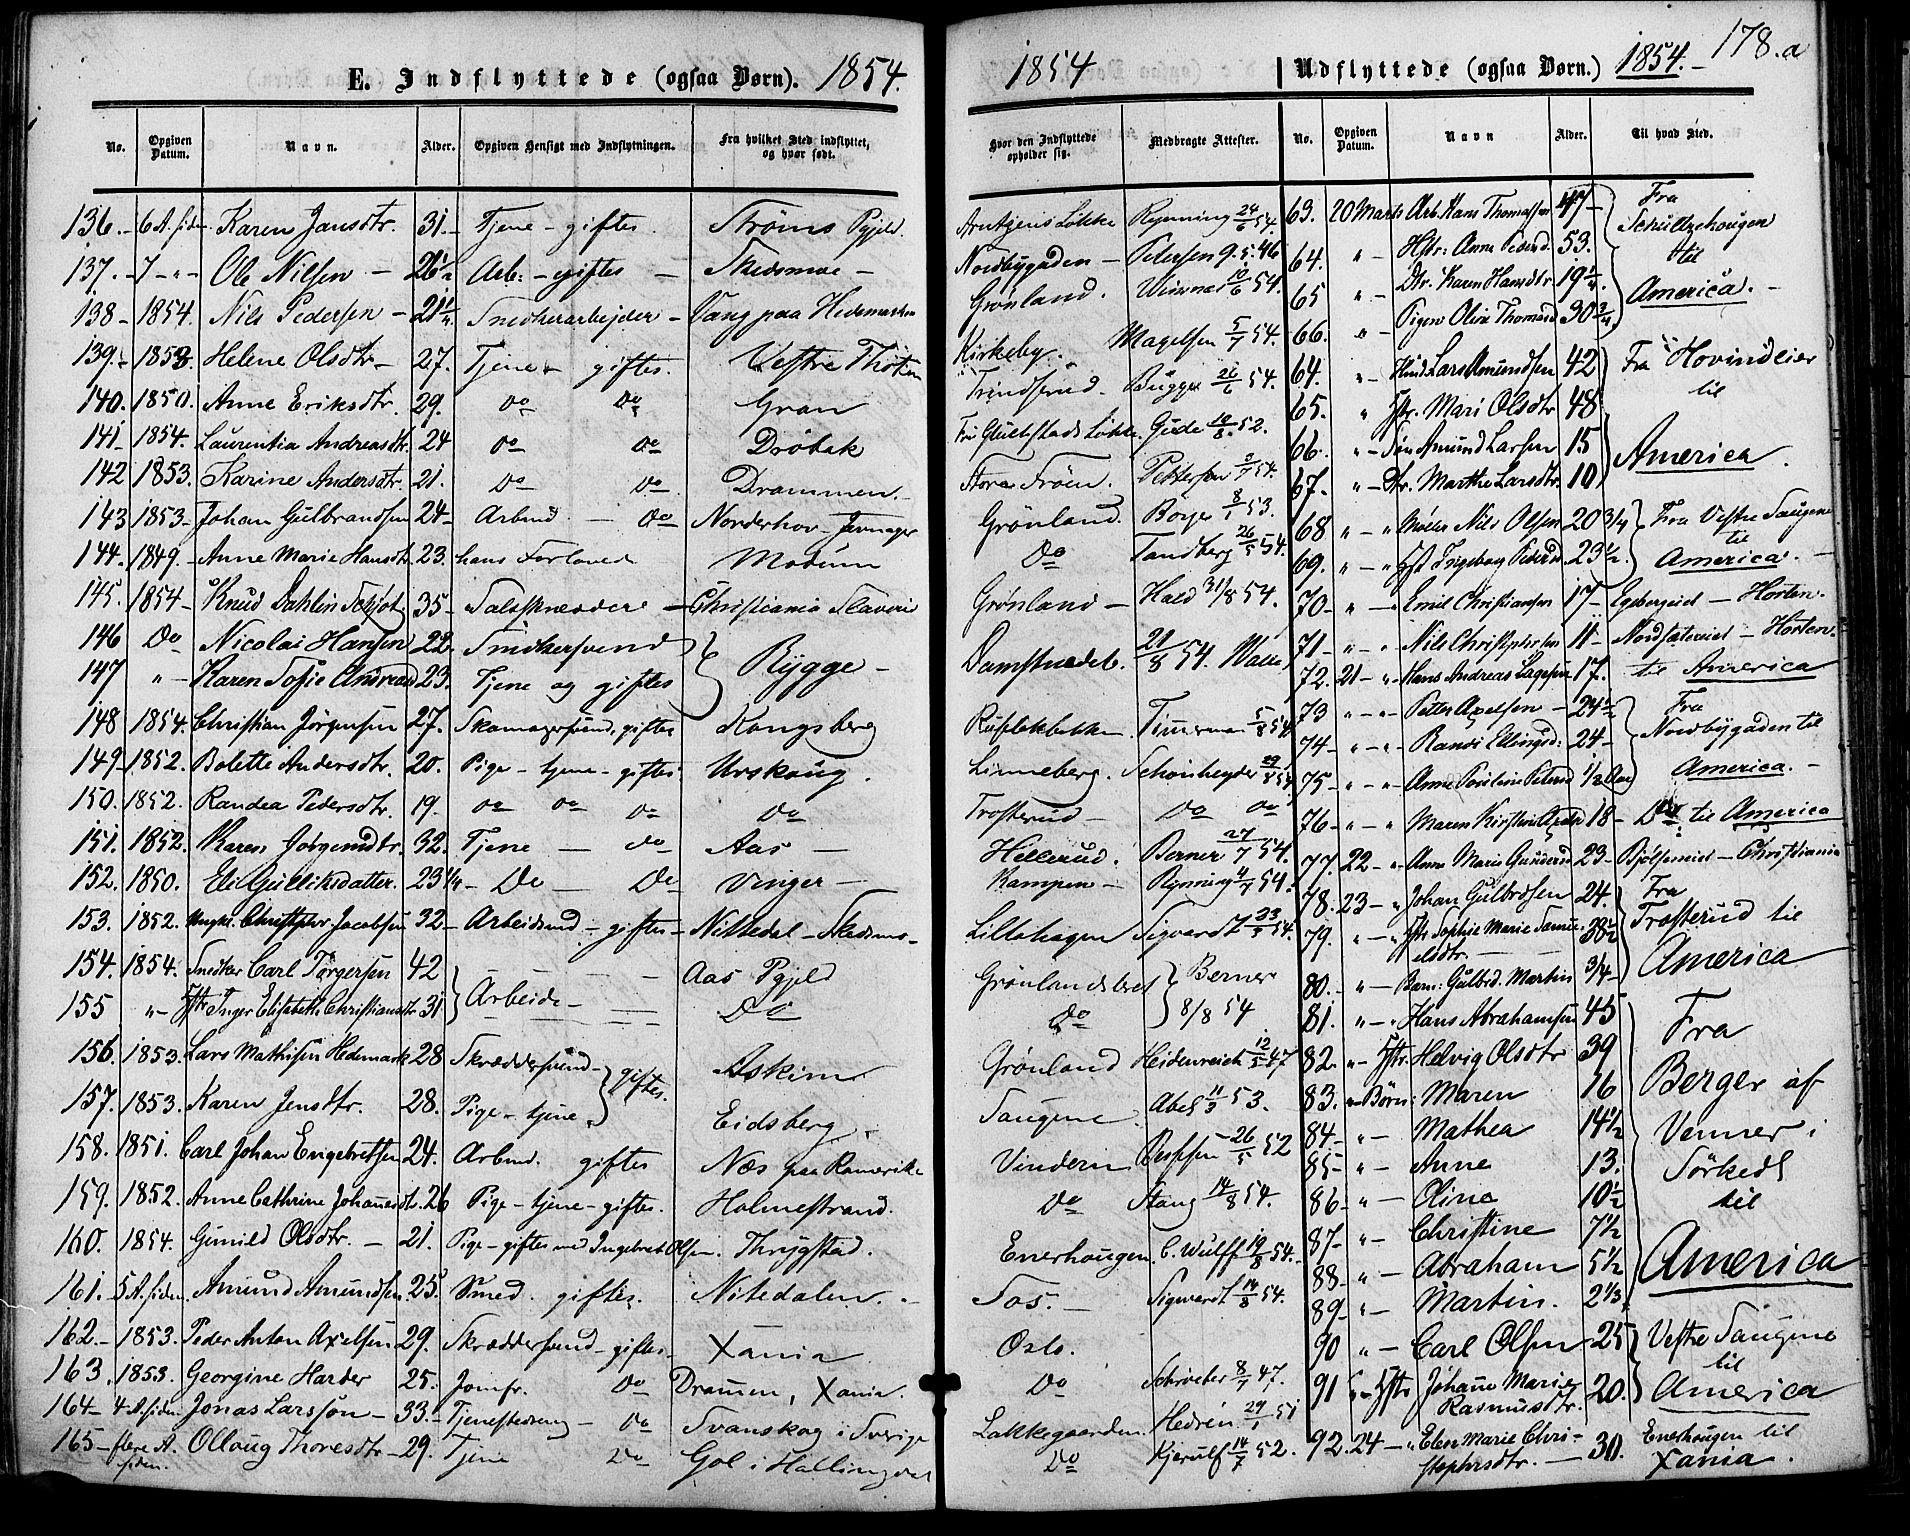 E. Indflyttede (ogsaa Børn). 1854.
No. Opgiven Datum. Navn. Alder. Opgiven Hensigt med Indflytningen. Fra hvilket Sted indflyttet, og hvor født.
136. 6 A. siden Karen Jansdtr. 31. Tjene - giftes. Strøms Pgjeld.
137. 7 " Ole Nilsen 26½ Arb. - giftes Skedsmoe
138 1854. Nils Pedersen 21¼ Snedkerarbejder Vang paa Hedemarken
139. 1853. Helene Olsdtr. 27. Tjene giftes. Vestre Thoten
140. 1850. Anne Eriksdtr. 29. Do Do Gran
141. 1854. Laurentia Andreasdtr. 24 Do Do Drøbak
142 1853. Karine Andersdtr. 21. Do Do Drammen.
143 1853 Johan Gulbrandsen 24 Arbmd. Do Norderhov Jevnager
144. 1849. Anne Marie Hansdtr. 23. hans Forlovede Modum
145. 1854 Knud Dahlin Schjøt 35 Christiania Slaveri
146 Do Nicolai Hansen 22. Snedkersvend
147 " Karen Sofie Andread 23. Tjene og giftes Rygge
148 1854. Christian Jørgensen 27. Skomagersvend, giftes Kongsberg
149 1852. Bolette Andersdtr. 20. Pige - tjene - giftes. Urskoug.
150. 1852. Randea Pedersdtr. 19. Do Do Do Do
151. 1852. Karen Jørgensdtr. 32. Tjene Do Aas
152. 1850. Eli Gulliksdatter. 23¼ Do Do Vinger
153. 1852. Ungk. Christopher Jacobsen 32 Arbeidsmd - giftes Nittedal - Skedsmo
154. 1854. Snedker Carl Tørgersen 42 Aas Pgjeld
155 " Hstr. Inger Elisabeth Christiansdtr 31 Arbeide Do
156. 1853. Lars Mathisen Hedemark 28 Skræddersvend Askim
157. 1853. Karen Jensdtr. 28. Pige - tjene giftes. Eidsberg
158. 1851. Carl Johan Engebretsen 24. Arbmd. giftes Næs paa Romerike
159. 1852. Anne Cathrine Johannesdtr. 26 Pige - tjene - giftes. Holmestrand.
160. 1854. Gunild Olsdtr. 21. Pige - giftes med Ingebret Olsen. Thrygstad.
161. 5 A. siden. Amund Amundsen 25. Smed. giftes. Nitedalen.
162. 1853. Peder Anton Axelsen 29. Skræddersvend - giftes Xania
163. 1853. Georgine Harder 25. Jomfr. Do Drammen, Xania.
164 4 A. siden Jonas Larsson 33. Tjenestedreng Do Svanskog i Sverige
165 flere A. siden. Olloug Thoresdtr 29. Tjene Do Gol i Hallingdal
1854 Udflyttede (ogsaa Børn.) 1854. 178.a
Hvor den Indflyttede opholder sig. Medbragte Attester. No. Opgiven Datum. Navn Alder. Til hvad Sted.
Arntzens Løkke Rynning 24/6 54. 63. 20 Marts Arb. Hans Thomassen 47 Fra
Nordbygaden Petersen 9.5.46 64. " Hstr: Anne Pedersd. 53. Schültzehougen
Grønland. Wimmer 10/6 54. 65 " Dtr. Karen Hansdtr 19¼. til
Kirkeby. Magelsen 5/7 54. 66. " Pigen Oline Thomasd 30¾ America.
Trindsrud Bugge 26/6 54. 64. " Husmd Lars Amundsen 42 Fra Hovindeier
Fru Gluckstads Løkke. Gude 10/8 52. 65. " Hstr. Mari Olsdtr 48 til
Store Frøen. Pettersen 3/7 54. 66. " Søn Amund Larsen 15 America.
67. " Dtr. Marthe Larsdtr. 10
Grønland. Borge 8/1 53. 68 " " Møller Nils Olsen 20 3/4 Fra Vestre Saugene
Do Tandberg 26/5 54. 69. " " Hst Ingeborg Pedersd 23½. til America.
Grønland Hald 31/8 54. 70 " Emil Christiansen 17 Egebergeiet - Horten.
71 " " Nils Christophersen 11 Nordsætereiet - Horten.
Damstrædet. 21/8 54. Walle 72. 21 " Hans Andreas Lagesen 17. til America
Ruseløkbakken. Timerman 5/8 54 73 " " Petter Axelsen 24½ Fra
74 " " Randi Ellingsd: 24 Nordbygaden til
Linneberg. Schønheyder 29/8 54 75 " " Anne Pouline Petersd 1/2 Aar America.
Trosterud Do Do 76 " " Maren Kirstine Axelsd 18 Do til America
Hellerud. Berner 27/7 54. 77. 22 " Anne Marie Gundersd 23 Bjølseneiet - Christiania
Kampen Rynning 4/7 54. 78. 23 " Johan Gulbrdsen 24. Fra
Lillehagen Sigvardt 23/5 54. 79. " " Hstr Sophie Marie Samuelsdtr. 38½ Trosterud til
Grønlandsleret Berner 80. " Barn: Gulbrd. Martin 3/4 America
Do 8/8 54 81. " " Hans Abrahamsen 45 Fra
Grønland Heidenreich 12/5 47 82. " Hstr. Helvig Olsdtr 39 Berger af
Saugene. Abel 11/3 53. 83. " Børn: Maren 16 Venner i
84 " Mathea 14½ Sørkedl
Vinderen 26/5 52 85 " Anne 13. til
Do Stang 14/8 54. 86 " Oline 10½ America
87 " Christine 7½
Enerhougen. C. Wulff 19/8 54. 88 " Abraham 5½
Sos. Sigwardt 14/8 54. 89 " Martin. 2⅓
Oslo. 90 " Carl Olsen 25 Vestre Saugene
Do Schrøeter 8/7 47. 91 " Hstr Johanne Marie Rasmusdtr. 20. til America
Lakkegaarden. Hedrén 29/1 51
Do Kjerulf 14/7 52. 92. 24 " Elen Marie Christophersdtr. 30. Enerhougen til Xania.